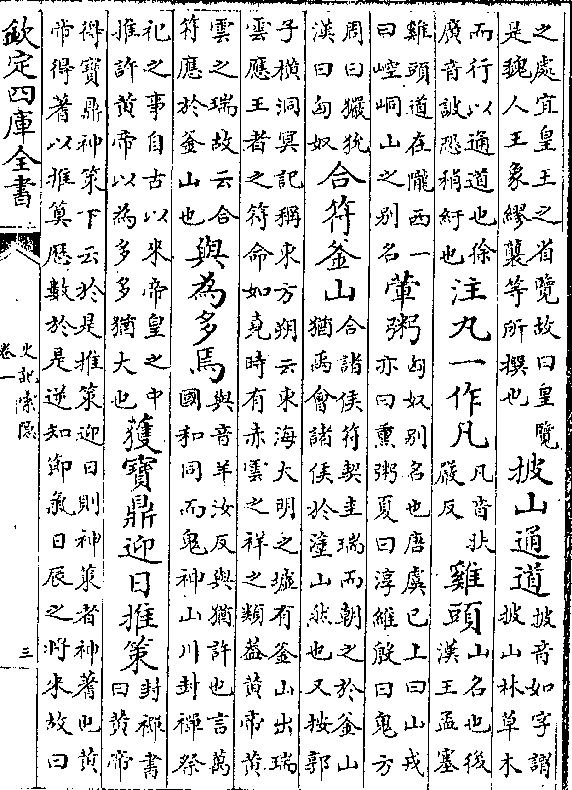 之處宜皇王之省覽故曰皇覽是魏人王象繆襲等所撰也披山通道披音如字謂披山林草木
而行以通道也徐廣音詖恐稍紆也注丸一作凡凡音扶嚴反雞頭山名也後漢王孟塞
雞頭道在隴西一曰崆峒山之別名葷粥匈奴別名也唐虞已上曰山戎亦曰熏粥夏曰淳維殷曰鬼方
周曰玁狁漢曰匈奴合符釜山合諸侯符契圭瑞而朝之於釜山猶禹會諸侯於塗山然也又按郭
子橫洞冥記稱東方朔云東海大明之墟有釜山出瑞雲應王者之符命如堯時有赤雲之祥之類蓋黃帝黃
雲之瑞故云合符應於釜山也與為多焉與音羊汝反與猶許也言萬國和同而鬼神山川封禪祭
祀之事自古以來帝皇之中推許黃帝以為多多猶大也獲寶鼎迎日推策封禪書曰黃帝
得寶鼎神策下云於是推策迎日則神策者神蓍也黃帝得蓍以推算歷數於是逆知節氣日辰之將來故曰
欽定四庫全書
史記索隱
卷一
三